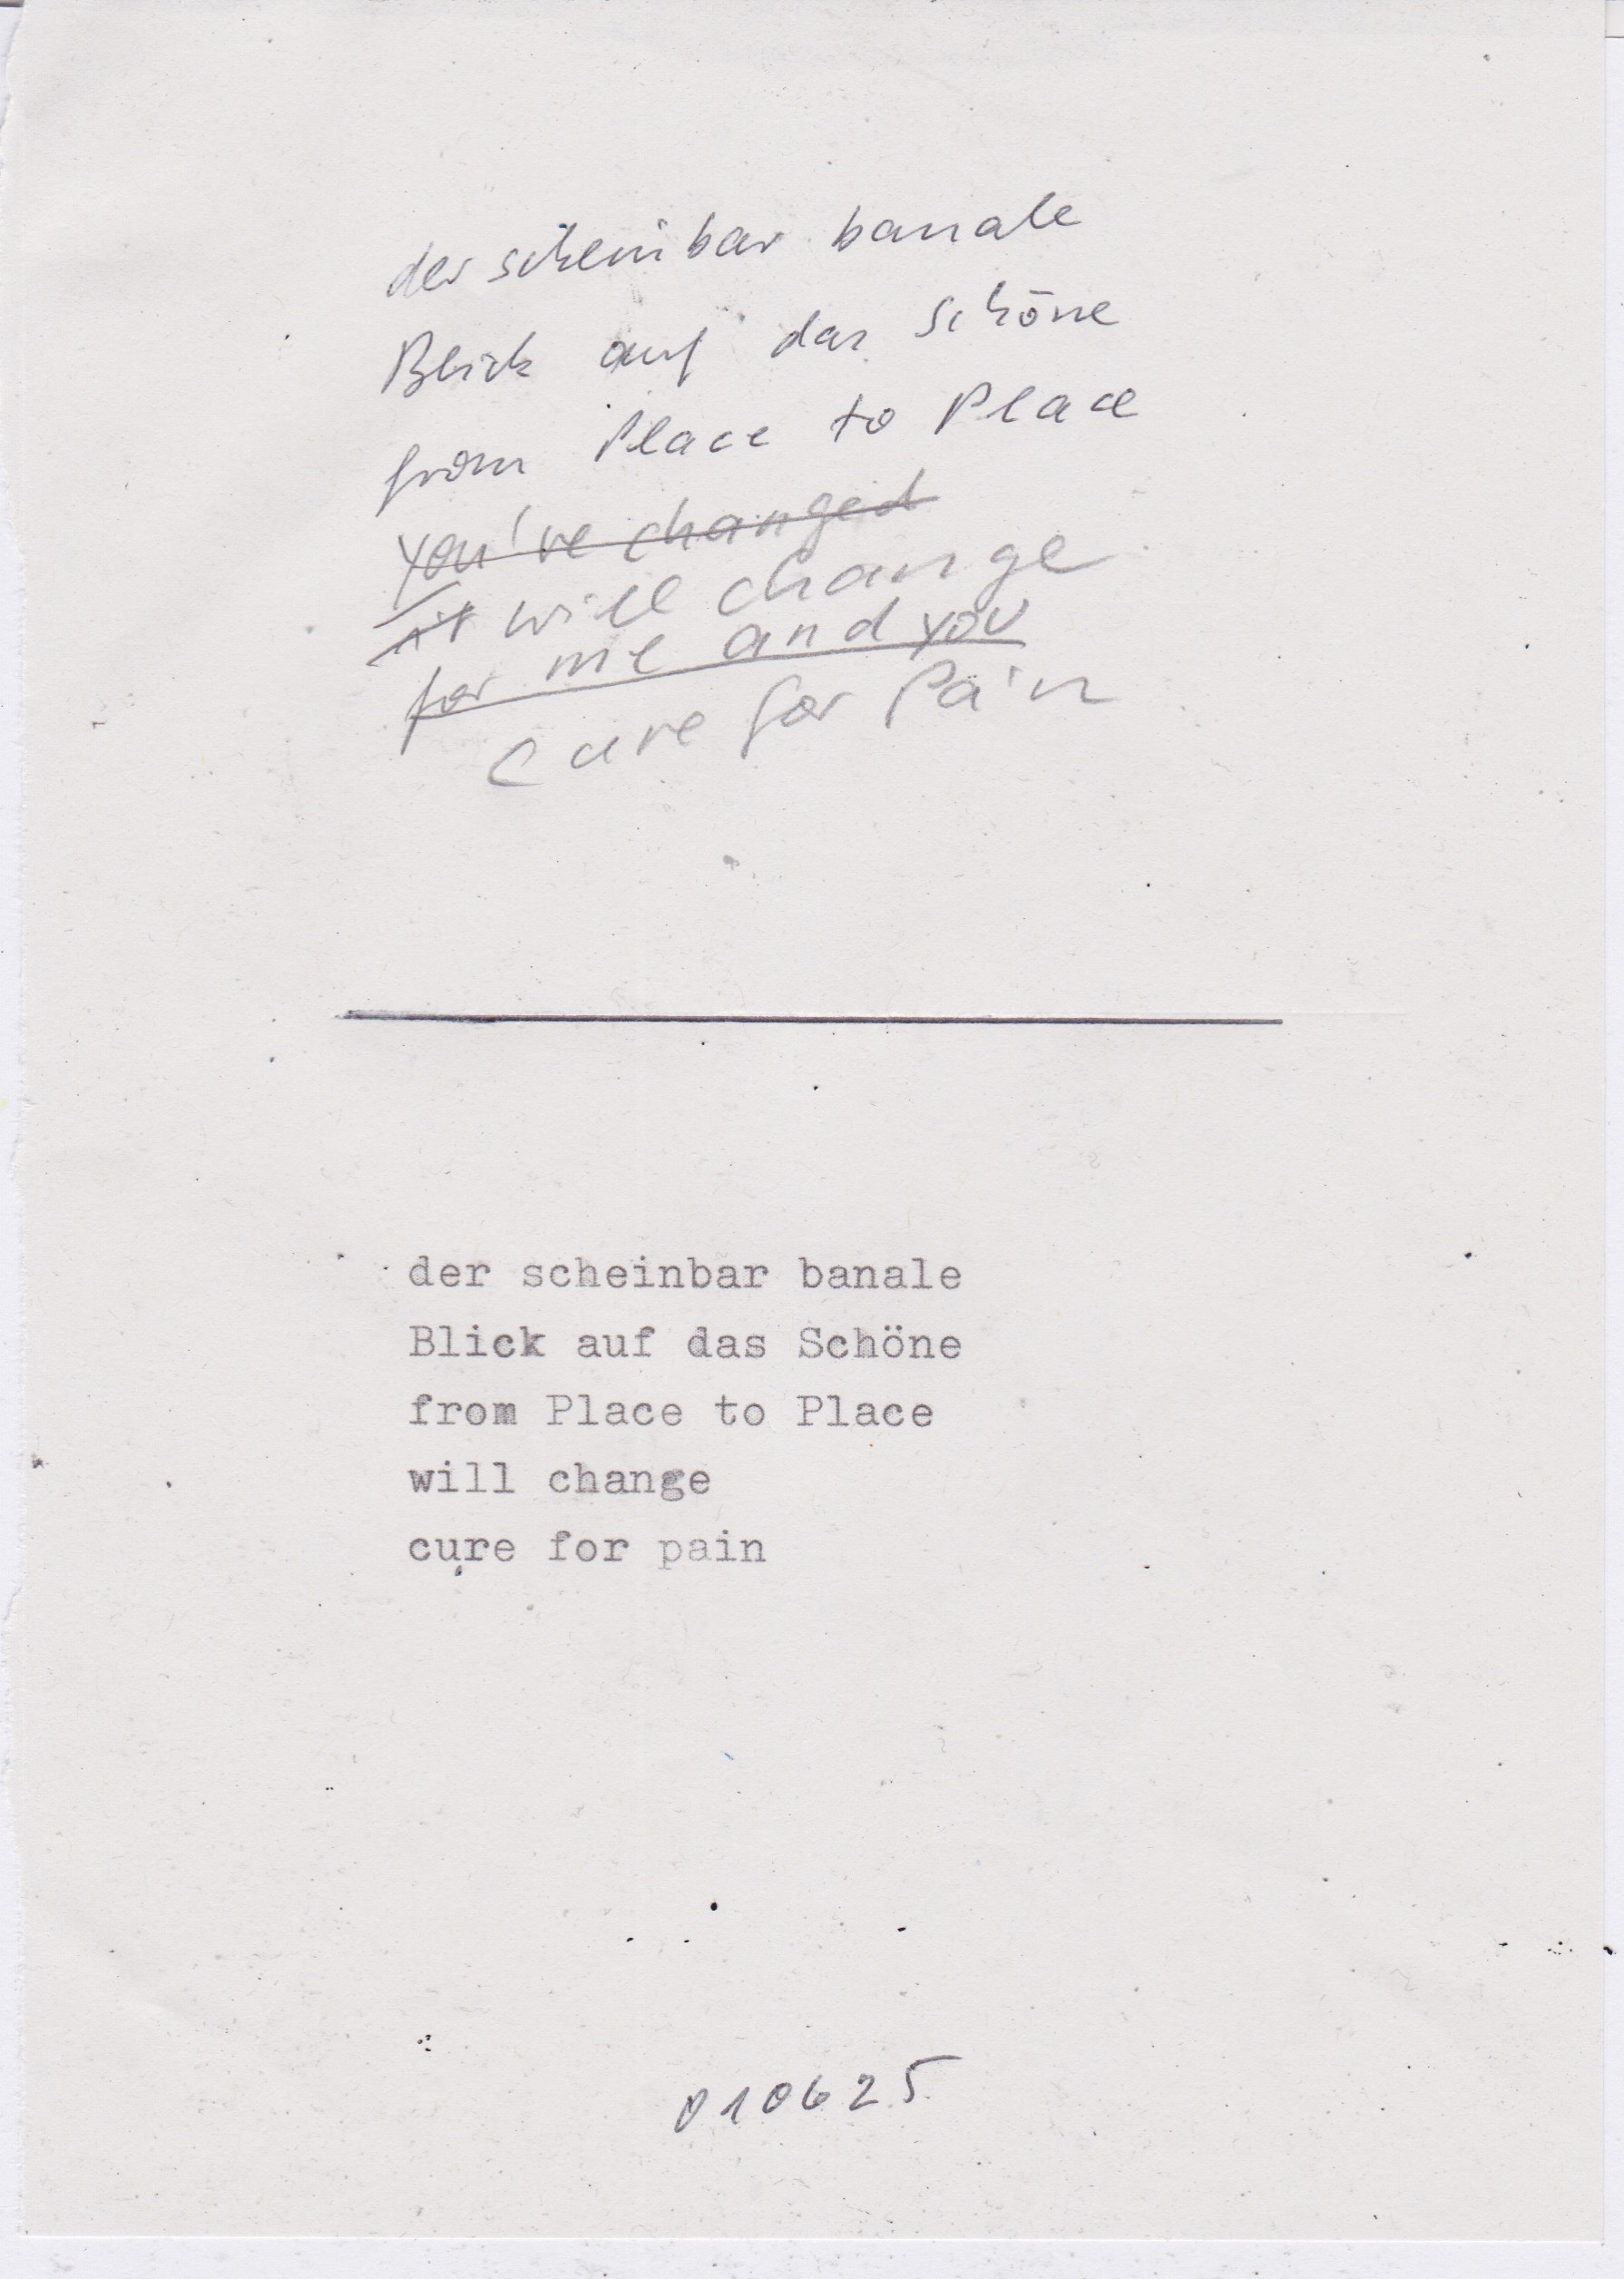 der scheinbar banale
Blick auf das Schöne
from Place to Place
you've changed
it will change
for me and you
cure for Pain
der scheinbar banale
Blick auf das Schöne
from Place to Place
will change
cure for pain
010625